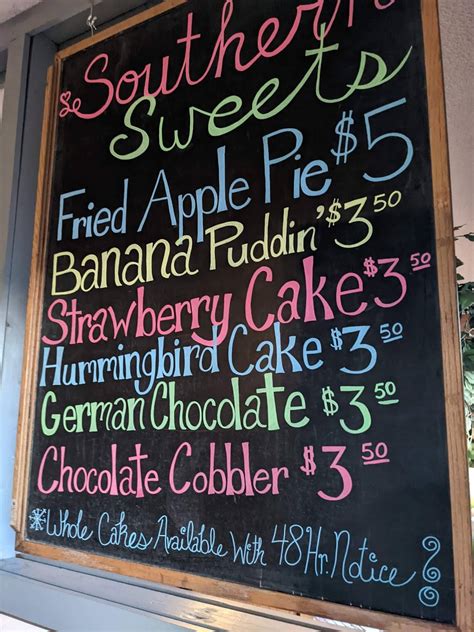 Southern
Sweets
Fried Apple Pie $5
Banana Puddin' $3.50
Strawberry Cake $3.50
Hummingbird Cake $3.50
German Chocolate $3.50
Chocolate Cobbler $3.50
*Whole Cakes Available With 48 Hr. Notice